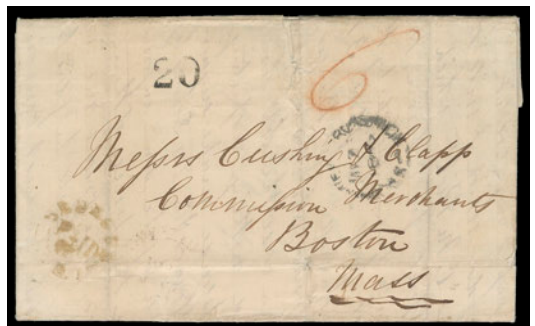 20
6
Messrs Cushing & Clapp
Commission Merchants
Boston
Mass